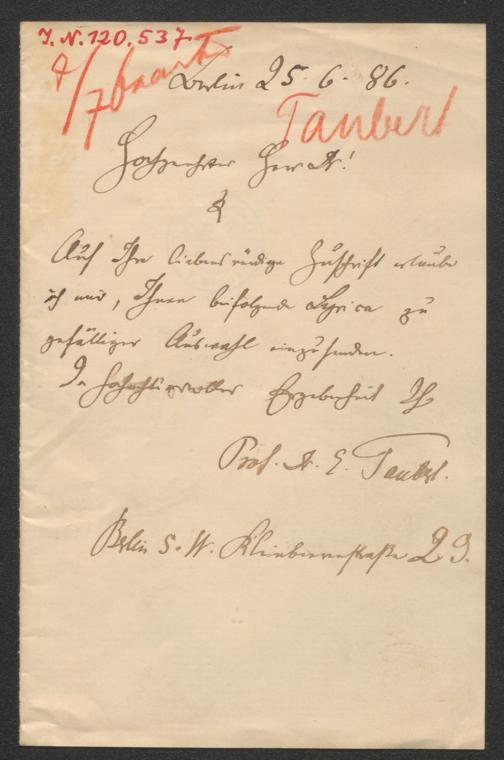 J. N. 120.537
7/7 beant
Berlin 25.6.86.
Taubert
Hochgeehrter Herr Dr!
Auf Ihre liebenswürdige Zuschrift erlaube
ich mir, Ihnen beifolgende Lyrica zu
gefälliger Auswahl einzusenden.
In hochachtungsvoller Ergebenheit Ihr
Prof. Dr. E. Taubert.
Berlin S. W. Kleinbeerenstraße 29.